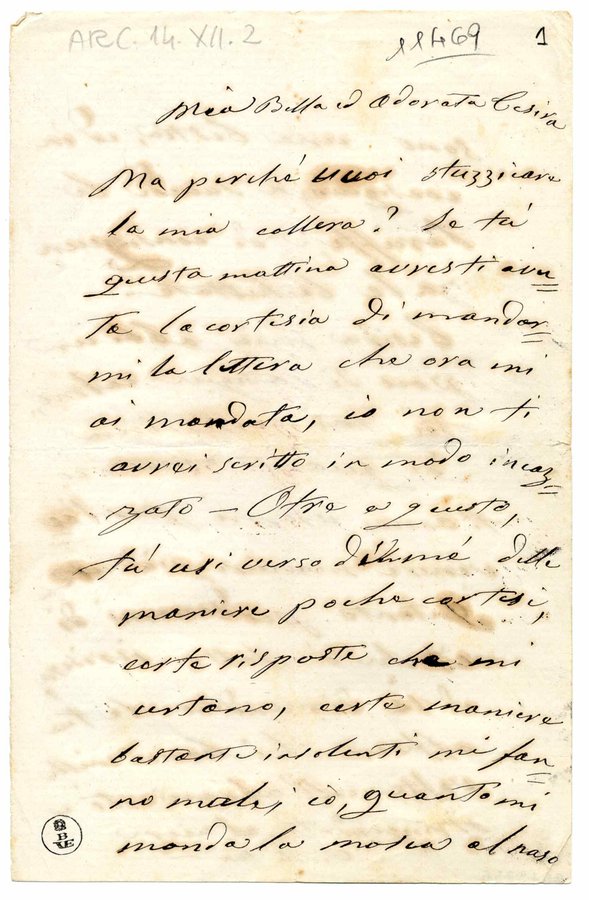 ARC. 14. XII. 2
11469
1
Mia Bella ed Odorata Cesira
Ma perché vuoi stuzzicare
la mia collera? Se tú
questa mattina avresti avu=
ta la cortesia di mandar=
mi la lettera che ora mi
ai mandata, io non ti
avrei scritto in modo incaz=
zato — Otre a questo,
tú usi verso di mé delle
maniere poche cortesi,
certe risposte che mi
urtano, certe maniere
bastante insolenti mi fan=
no male; io, quanto mi
monda la mosca al naso
BVE